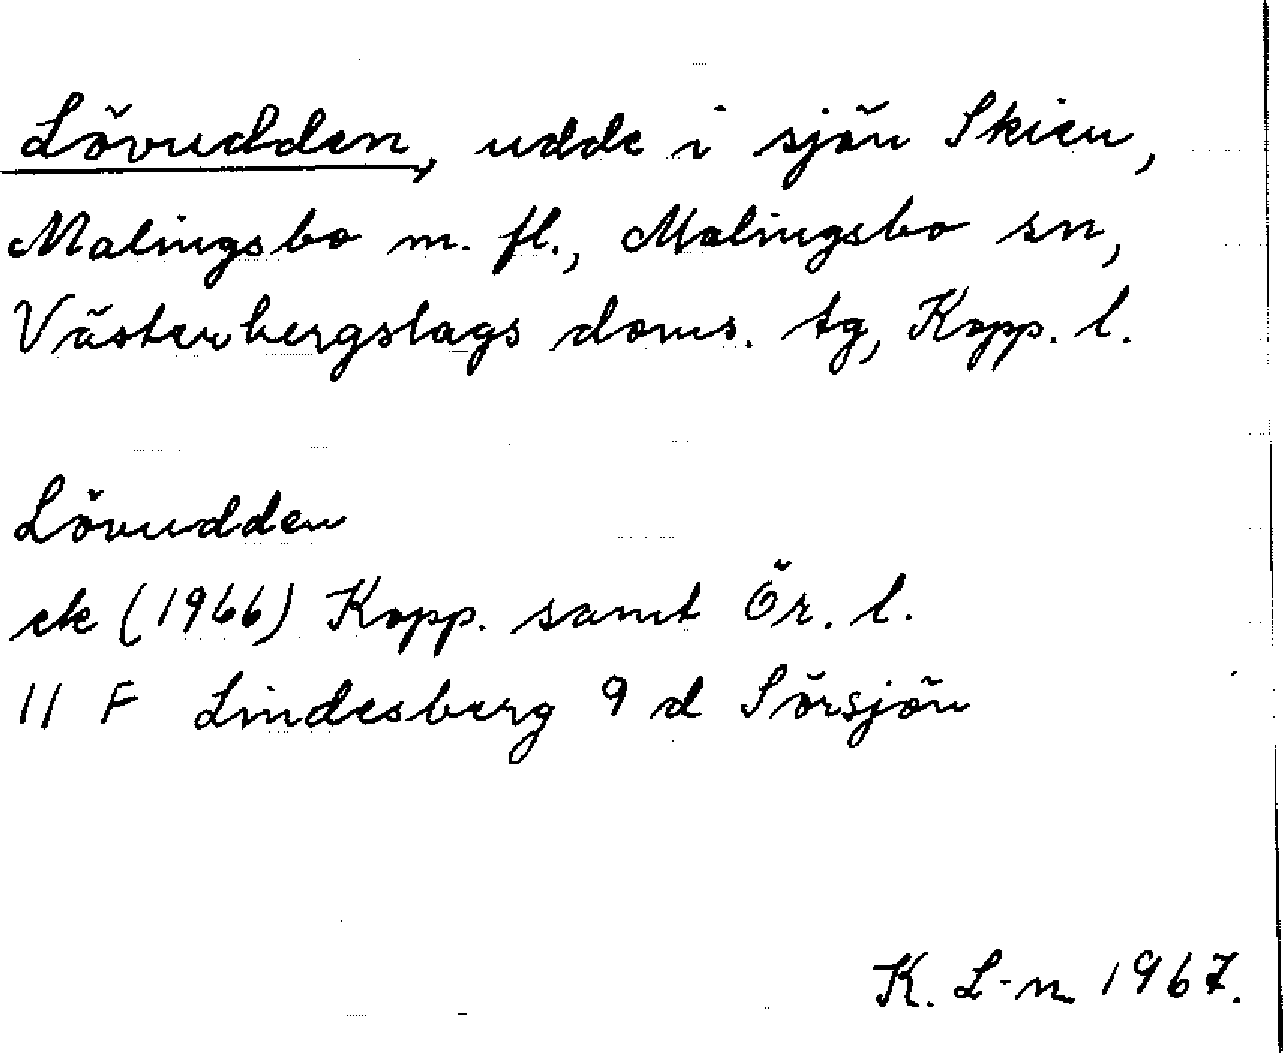 Lövudden, udde i sjön Skien,
Malingsbo m. fl., Malingsbo sn,
Västerbergslags doms. tg, Kopp. l.
Lövudden
ek (1966) Kopp. samt Ör. l.
11 F Lindesberg 9 d Sörsjön
K. L-n 1967.